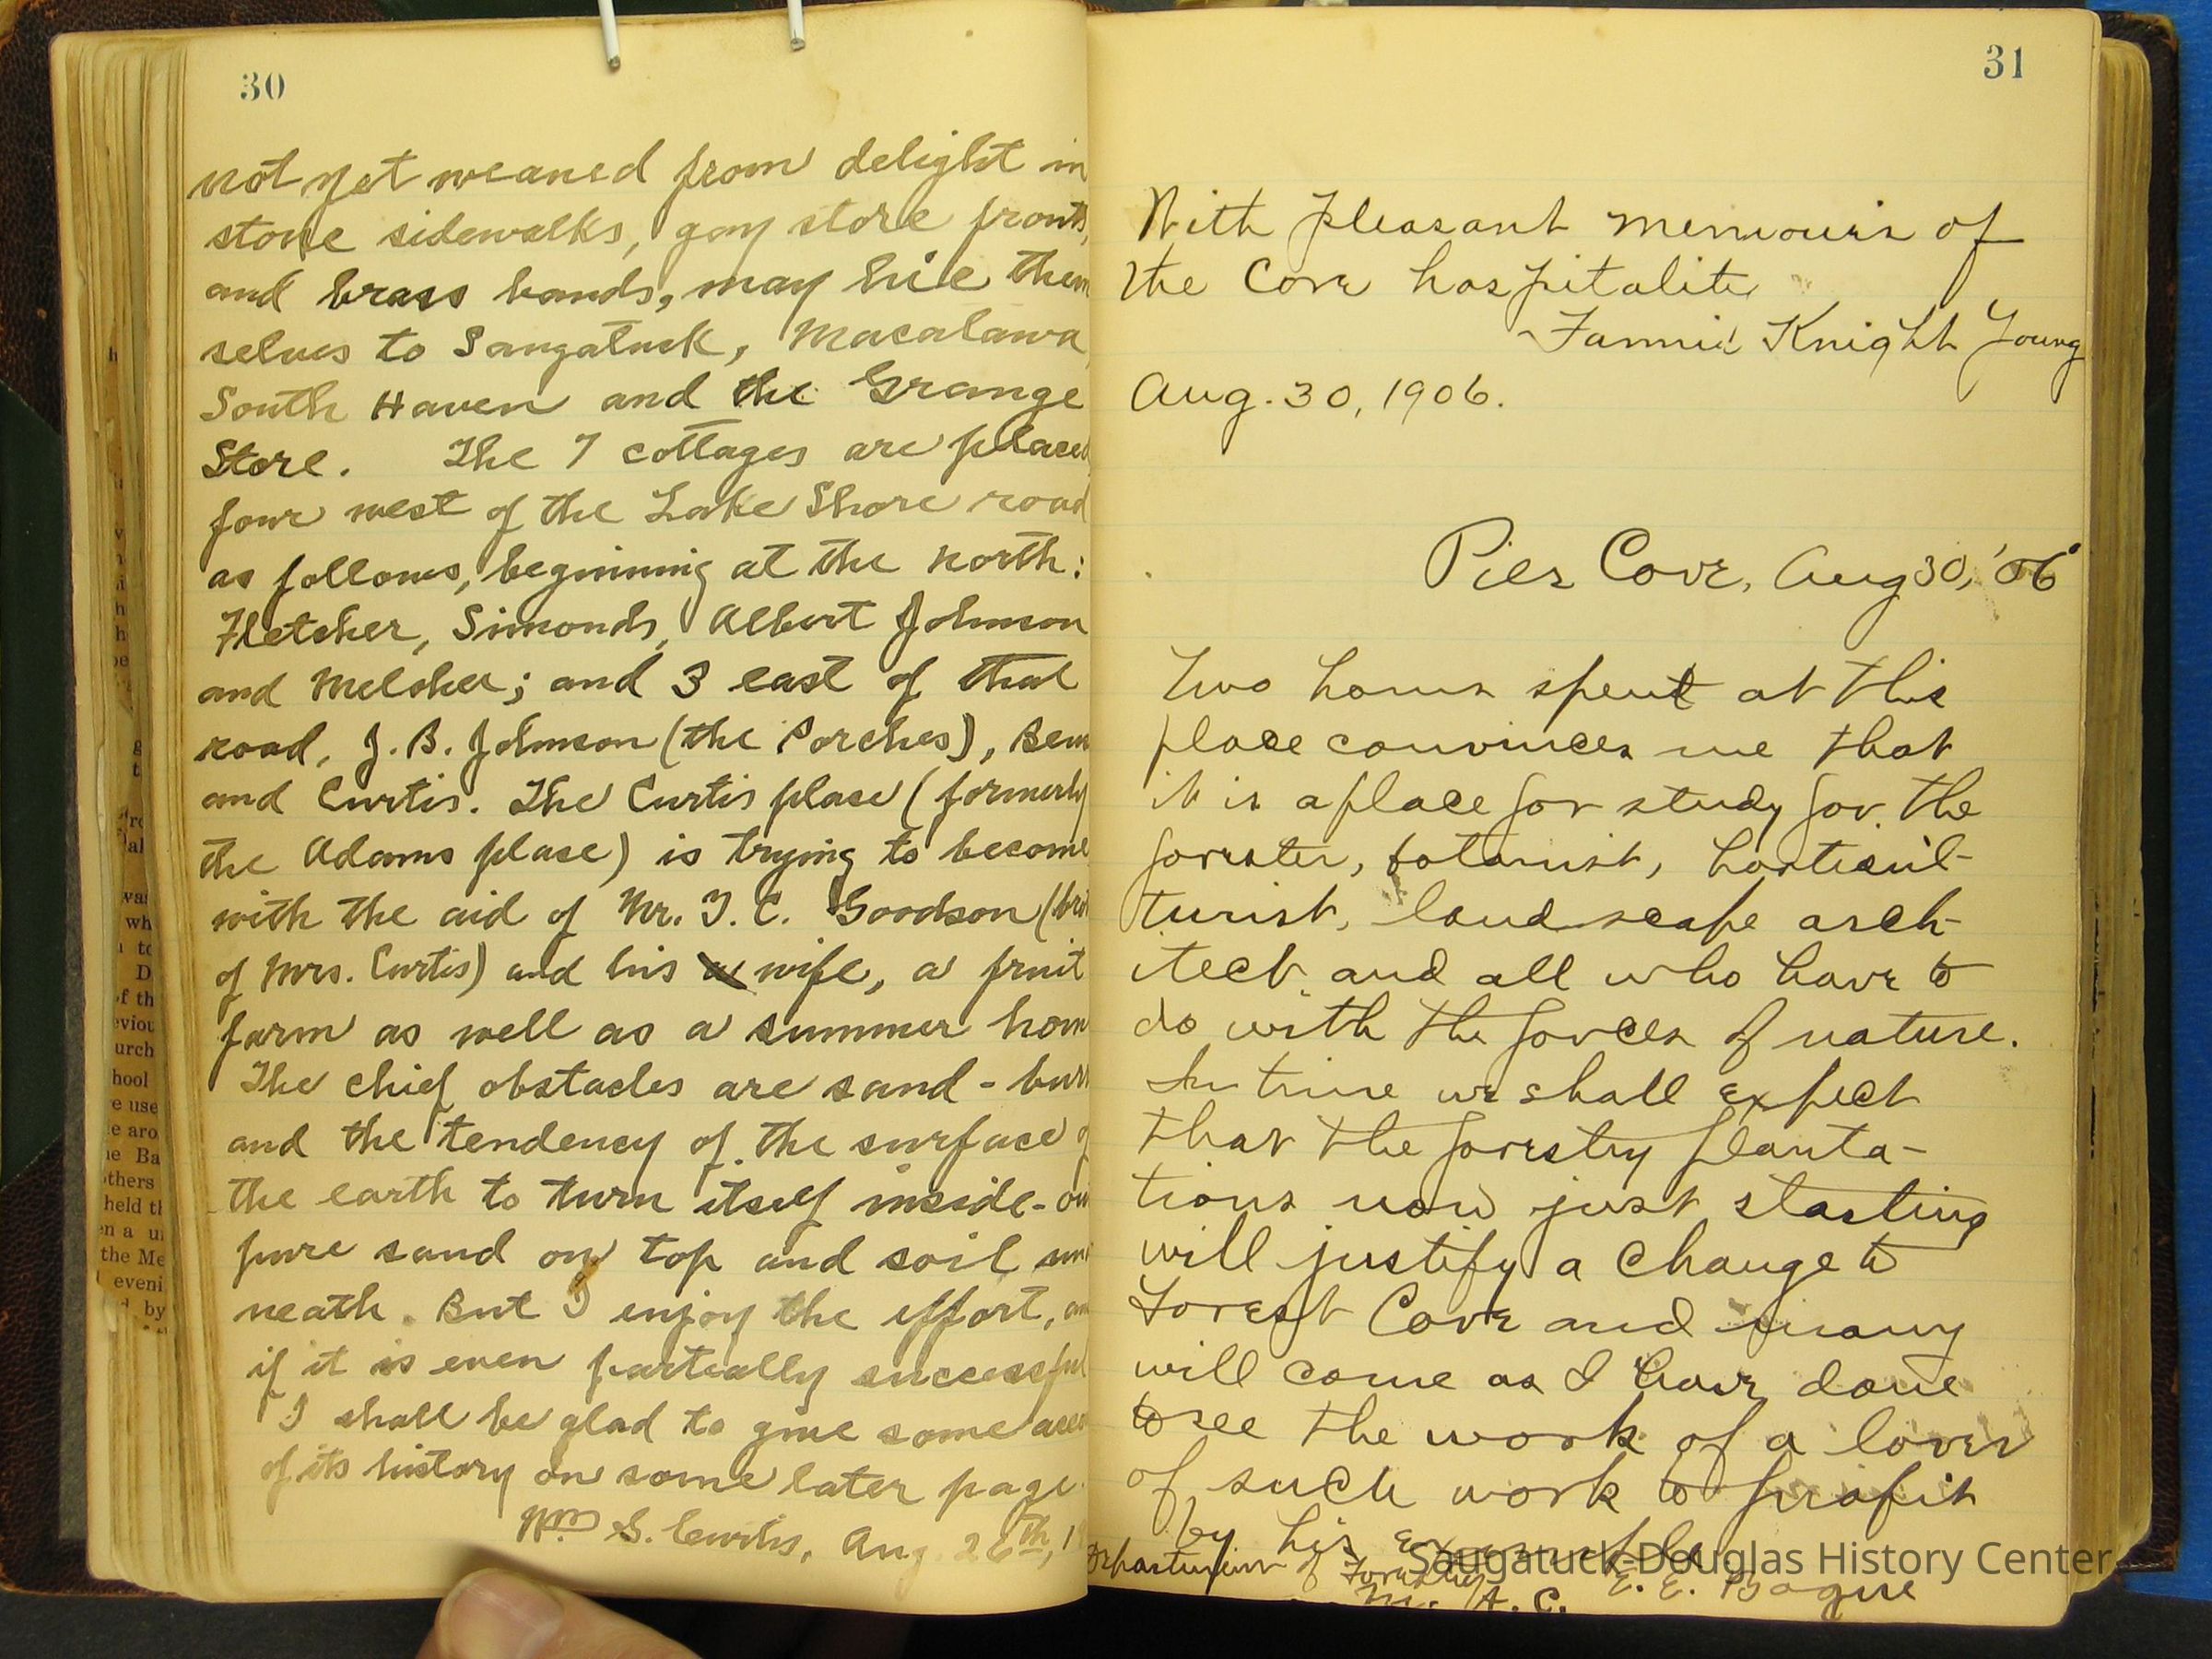 30
not yet weaned from delight in
stone sidewalks, gay store fronts,
and brass bands, may hie them
selves to Saugatuck, Macatawa
South Haven and the Grange
Store. The 7 cottages are placed
four west of the Lake Shore road
as follows, beginning at the north:
Fletcher, Simonds, Albert Johnson
and Melcher; and 3 east of that
road, J. B. Johnson (the Porches),
and Curtis. The Curtis place (formerly
the Adams place) is trying to become
with the aid of Mr. T. C. Goodson (bro
of Mrs. Curtis) and his wife, a fruit
farm as well as a summer hom
The chief obstacles are sand-burr
and the tendency of the surface o
the earth to turn itself inside-ou
pure sand on top and soil un
neath. But I enjoy the effort, an
if it is even partially successful
I shall be glad to give some acc
of its history on some later page.
Wm S. Curtis, Aug. 26th, 1
31
With pleasant memouris of
the Cove hospitalite
Fannie Knight Young
Aug. 30, 1906.
Pier Cove, Aug 30, '06
Two hours spent at this
place convinces me that
it is a place for study for the
forester, botanist, horticul-
turist, landscape arch-
itect and all who have to
do with the forces of nature.
In time we shall expect
that the forestry planta-
tions now just starting
will justify a change to
Forest Cove and many
will come as I have done
to see the work of a lover
of such work to profit
by his example
Department of Forestry E. E. Bogue
M. A. C.
Saugatuck-Douglas History Center